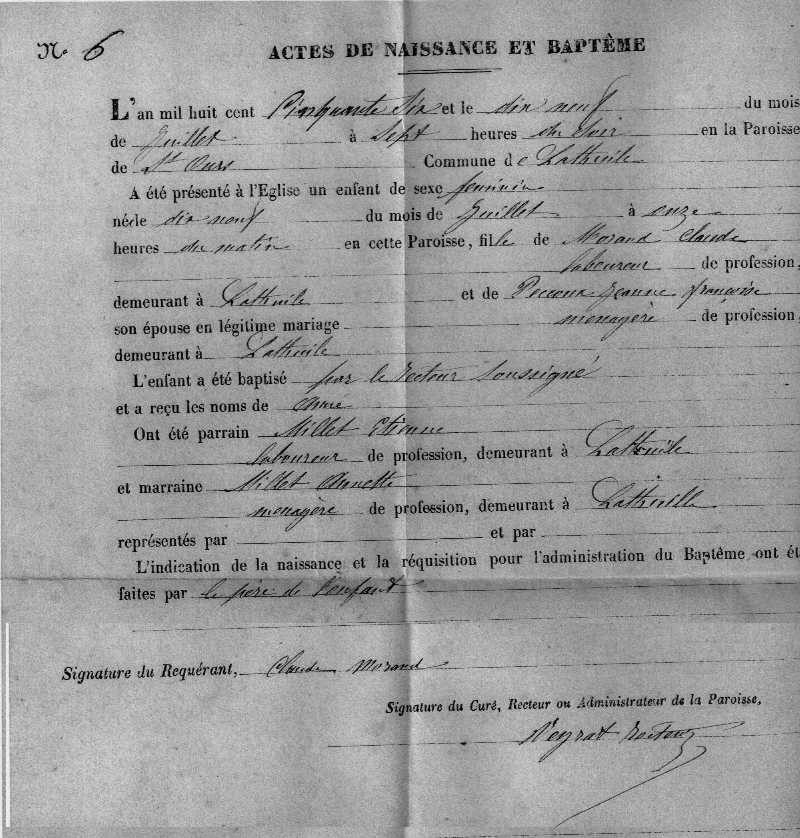 N.o 6 ACTES DE NAISSANCE ET BAPTÊME
L'an mil huit cent Cinquante Six et le dix neuf du mois
de Juillet à Sept heures du Soir en la Paroisse
de St Ours Commune de Lathuile
A été présenté à l'Eglise un enfant de sexe feminin
née le dix neuf du mois de Juillet à onze
heures du matin en cette Paroisse, fille de Morand Claude
laboureur de profession,
demeurant à Lathuile et de Jeanne françoise
son épouse en légitime mariage menagère de profession,
demeurant à Lathuile
L'enfant a été baptisé par le recteur Soussigné
et a reçu les noms de
Ont été parrain Millet Etienne
laboureur de profession, demeurant à Lathuile
et marraine Millet Annette
menagère de profession, demeurant à Lathuille
représentés par et par
L'indication de la naissance et la réquisition pour l'administration du Baptême ont ét
faites par le père de l'enfant
Signature du Requérant, Claude Morand
Signature du Curé, Recteur ou Administrateur de la Paroisse,
Veyrat Recteur